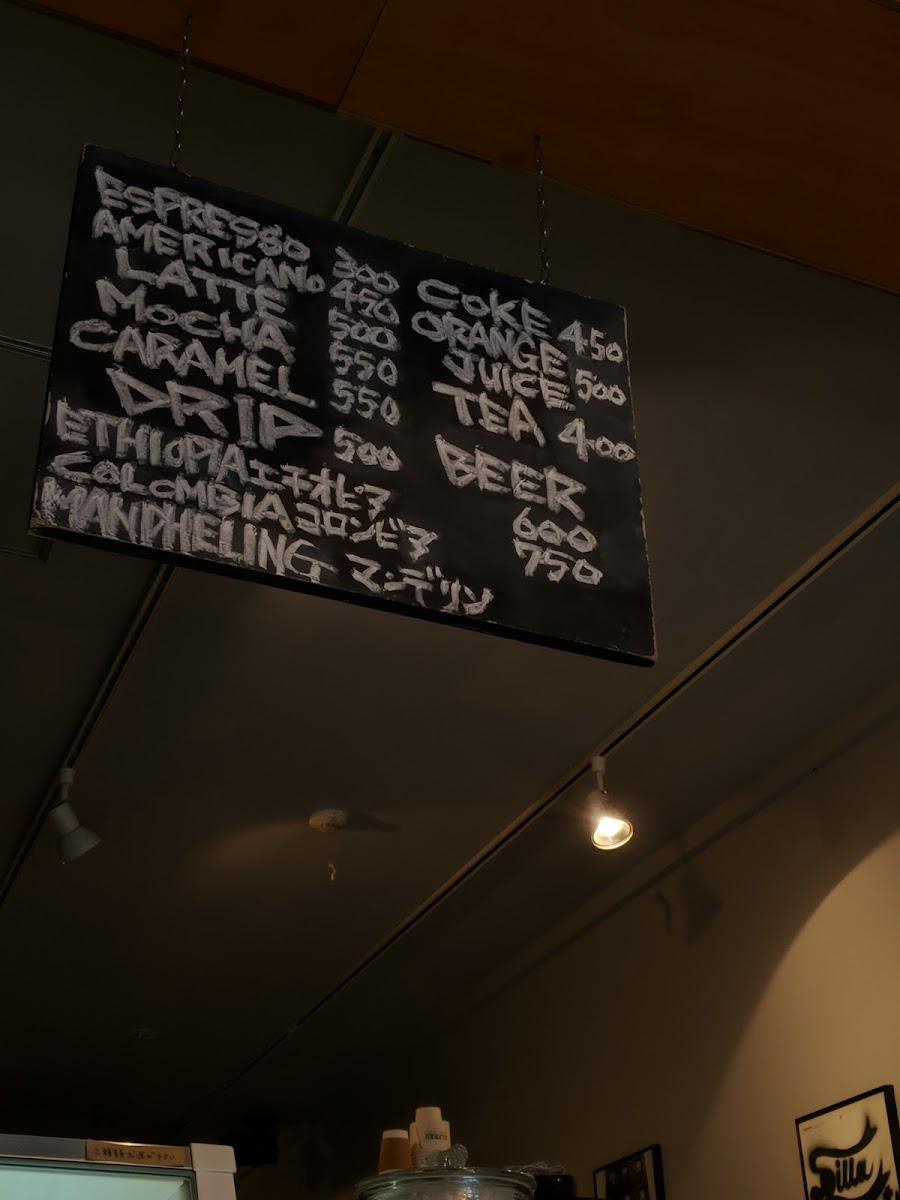 ESPRESSO 300
AMERICANO 450
LATTE 500
MOCHA 550
CARAMEL 550
DRIP 500
ETHIOPIA エチオピア
COLOMBIA コロンビア
MANDHELING マンデリン
COKE 450
ORANGE
JUICE 500
TEA 400
BEER
600
750
Silla